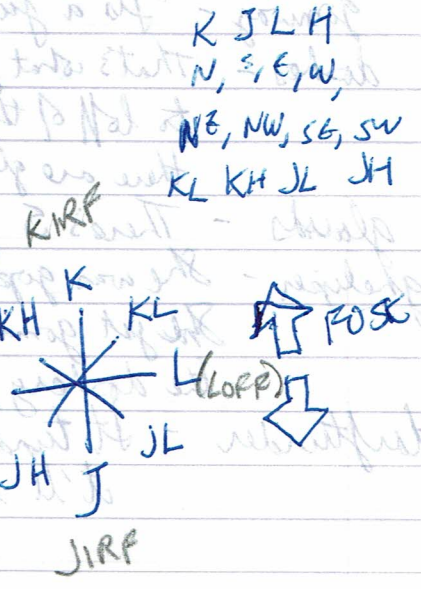 K J L H
N, S, E, W,
NE, NW, SE, SW
KL KH JL JH
KIRF
K
KH KL
L (LOFF)
FOSK
JH JL
J
JIRF